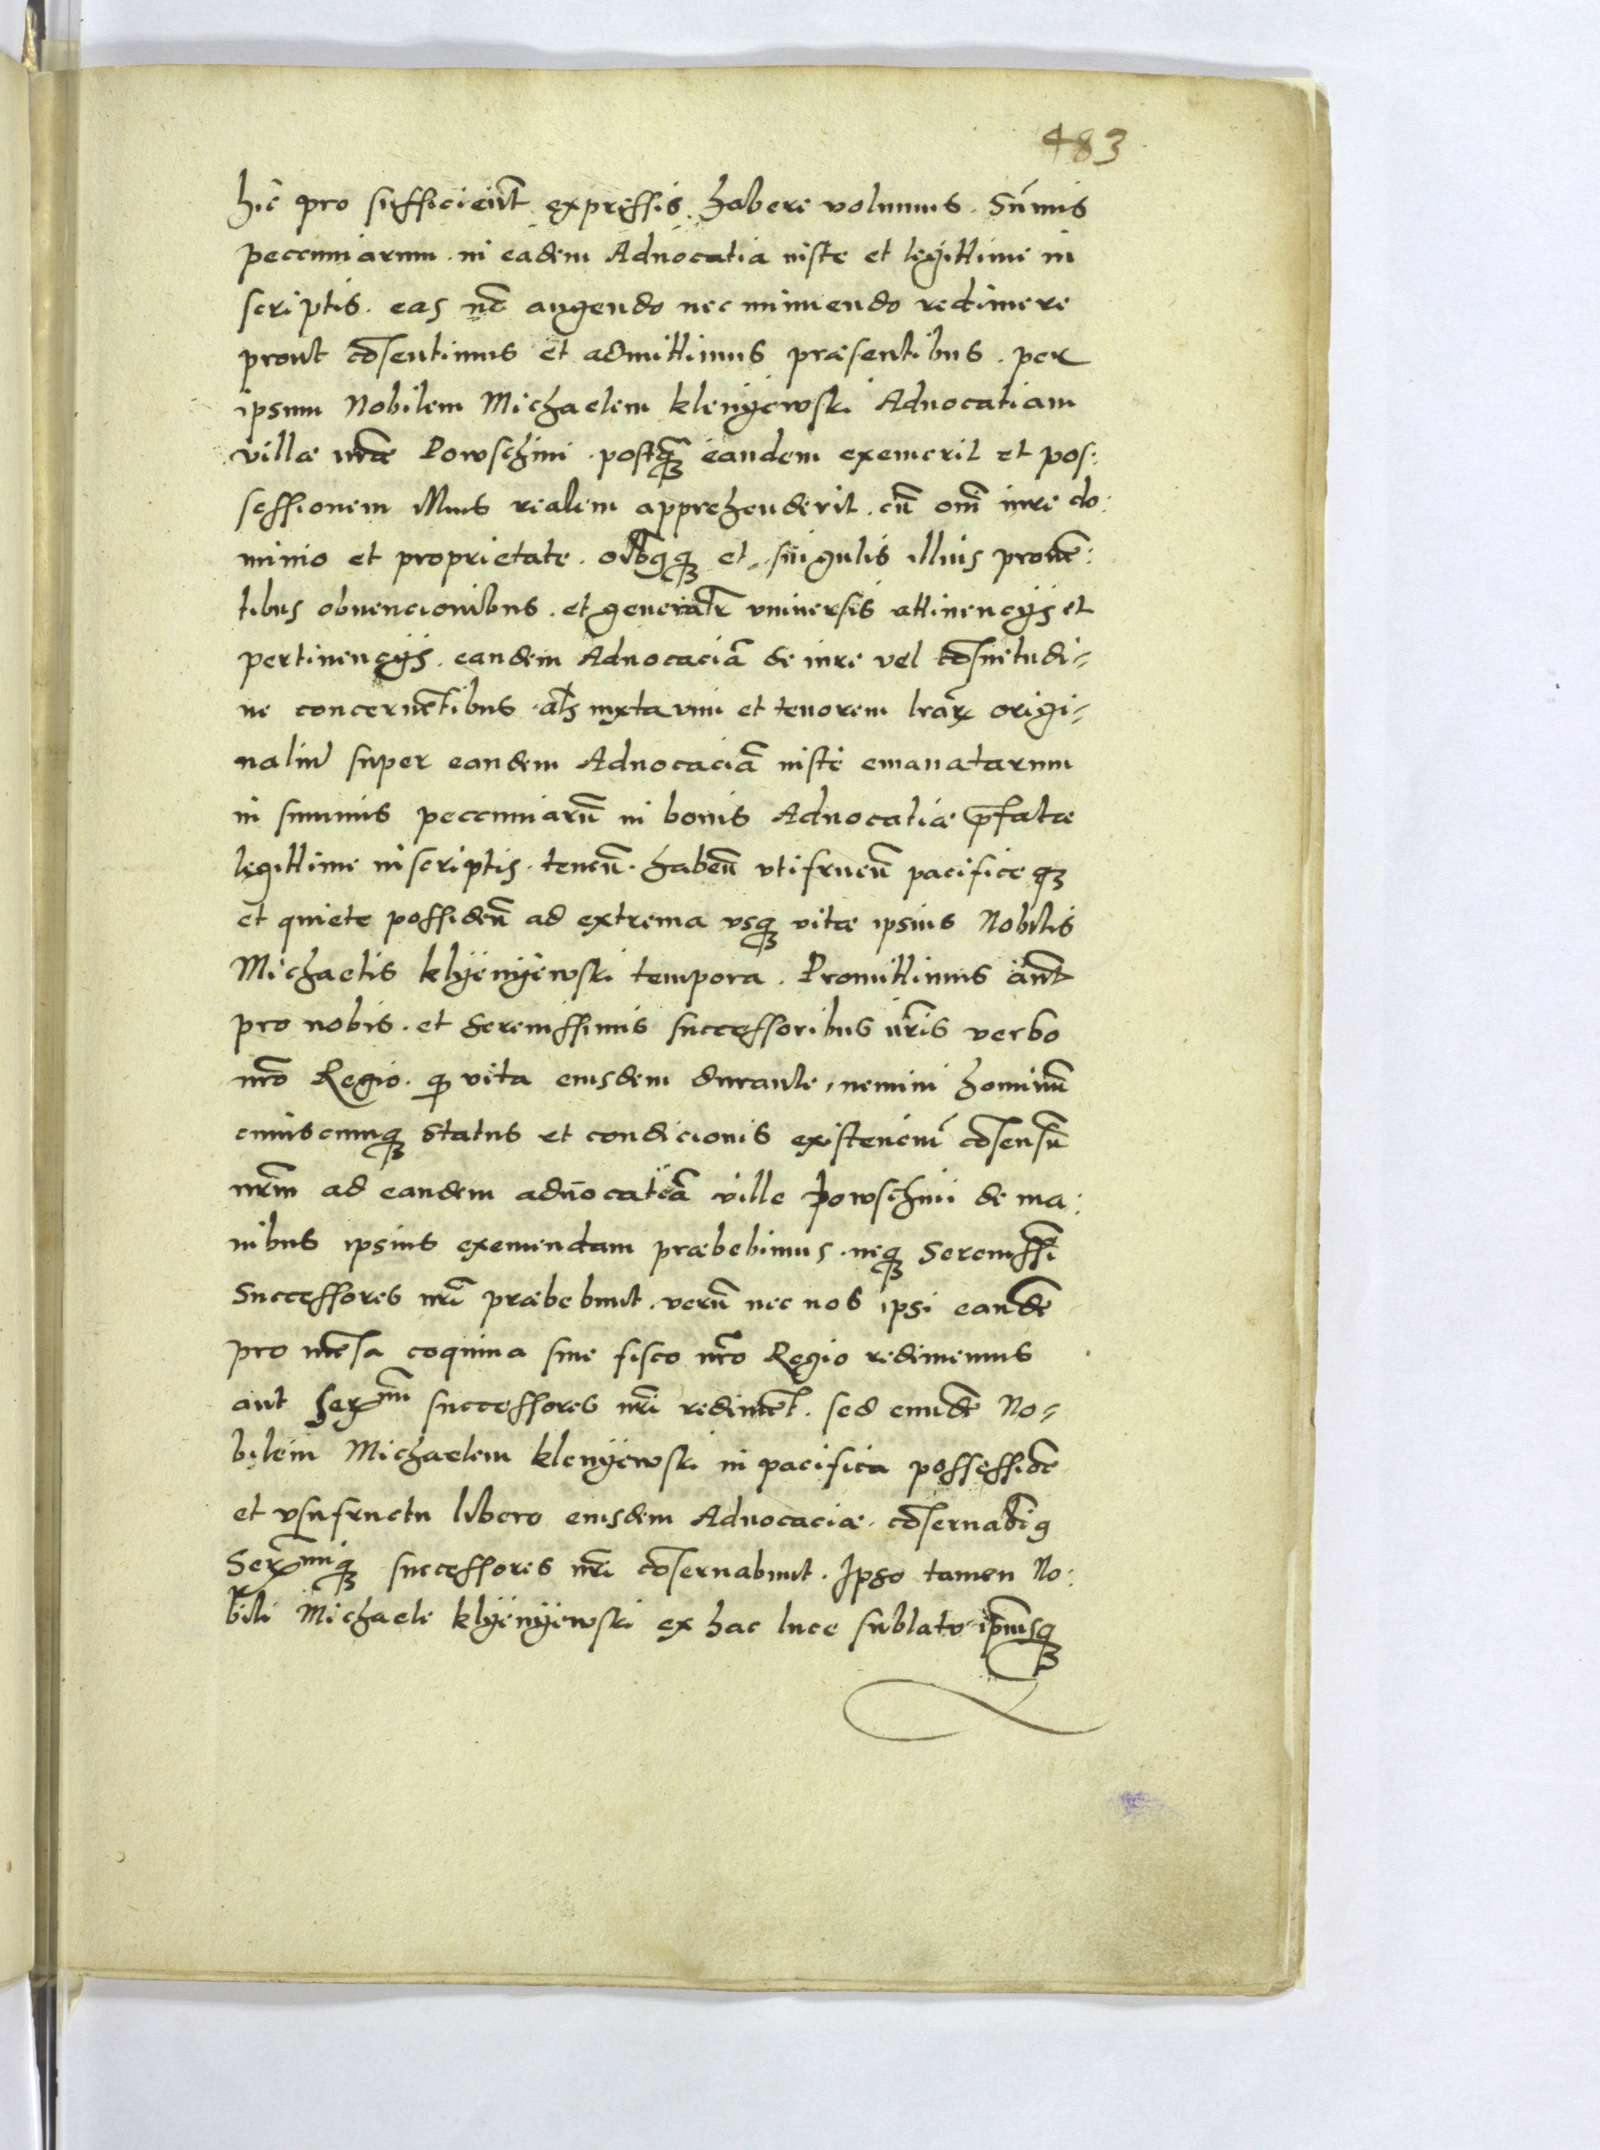 483
hic pro sufficient̃ expressis habere volumus. Sum̃is
peccuniarum in eadem Aduocatia iuste et legittime in
scriptis. eas nõ augendo nec minuendo redimere
prout cõsentimus et admittimus præsentibus. per
ipsum Nobilem Michaelem klenyewski Aduocatiam
villæ nr̃æ Powschini. postq̃ eandem exemerit et pos:
sessionem illius realem apprehenderit. cũ om̃i iure do:
minio et proprietate. oĩbusq et singulis illius prouẽ:
tibus obuencionibus. et generalr̃ vniuersis attinencÿs et
pertinencÿs. eandem Aduocaciã de iure vel cõsuetudi=
ne concernẽtibus. al̃s iuxta vim et tenorem lr̃arꝝ origi=
naliũ super eandem Aduocaciã iuste emanatarum
in summis peccuniarũ in bonis Aduocatiæ p̃fatæ
legittime inscriptis. teneñ. habeñ vtifrueñ pacificeq
et quiete possideñ ad extrema vsq vitæ ipsius Nobilis
Michaelis klÿenÿewski tempora. Promittimus aũt
pro nobis. et serenissimis successoribus nr̃is verbo
nr̃o Regio. q vita eiusdem durante, nemini hominũ
cuiuscunq status et condicionis existenciũ cõsensũ
nr̃m ad eandem aduocatiã ville Powschini de ma:
nibus ipsius exemendam præbebimus. neq Serenissĩ
Successores nr̃i præbebunt. verũ nec nos ipsi eandẽ
pro mẽsa coquina siue fisco nr̃o Regio redimemus
aut Serᵐⁱ successores nr̃i redimẽt. sed eundẽ No=
bilem Michaelem klenÿewski in pacifica possessiõe
et vsufructu libero eiusdem Aduocaciæ. cõseruabim9
Serᵐⁱq successores nr̃i cõseruabunt. Ipso tamen No:
bili Michaele klÿenÿewski ex hac luce sublato ip̃iusq